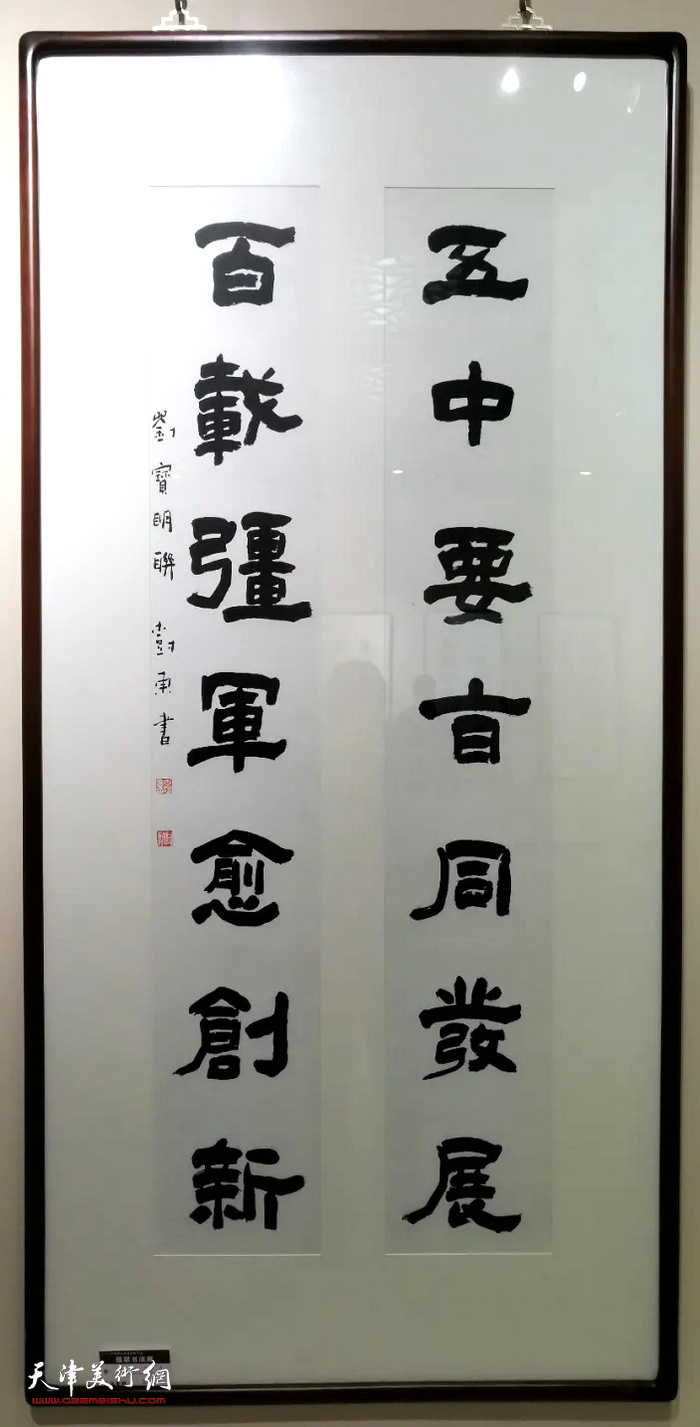 五中要旨同發展
百載彊軍愈創新
劉寶明聯 書
天津美術網
www.022meishu.com